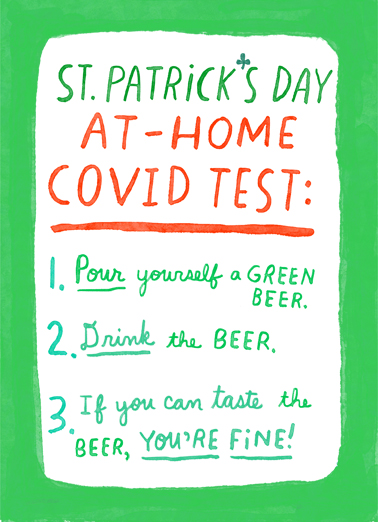 ST. PATRiCK'S DAY
AT-HOME
COVID TEST:
1. Pour yourself a GREEN
BEER.
2. Drink the BEER.
3. If you can taste the
BEER, YOU'RE FiNE!